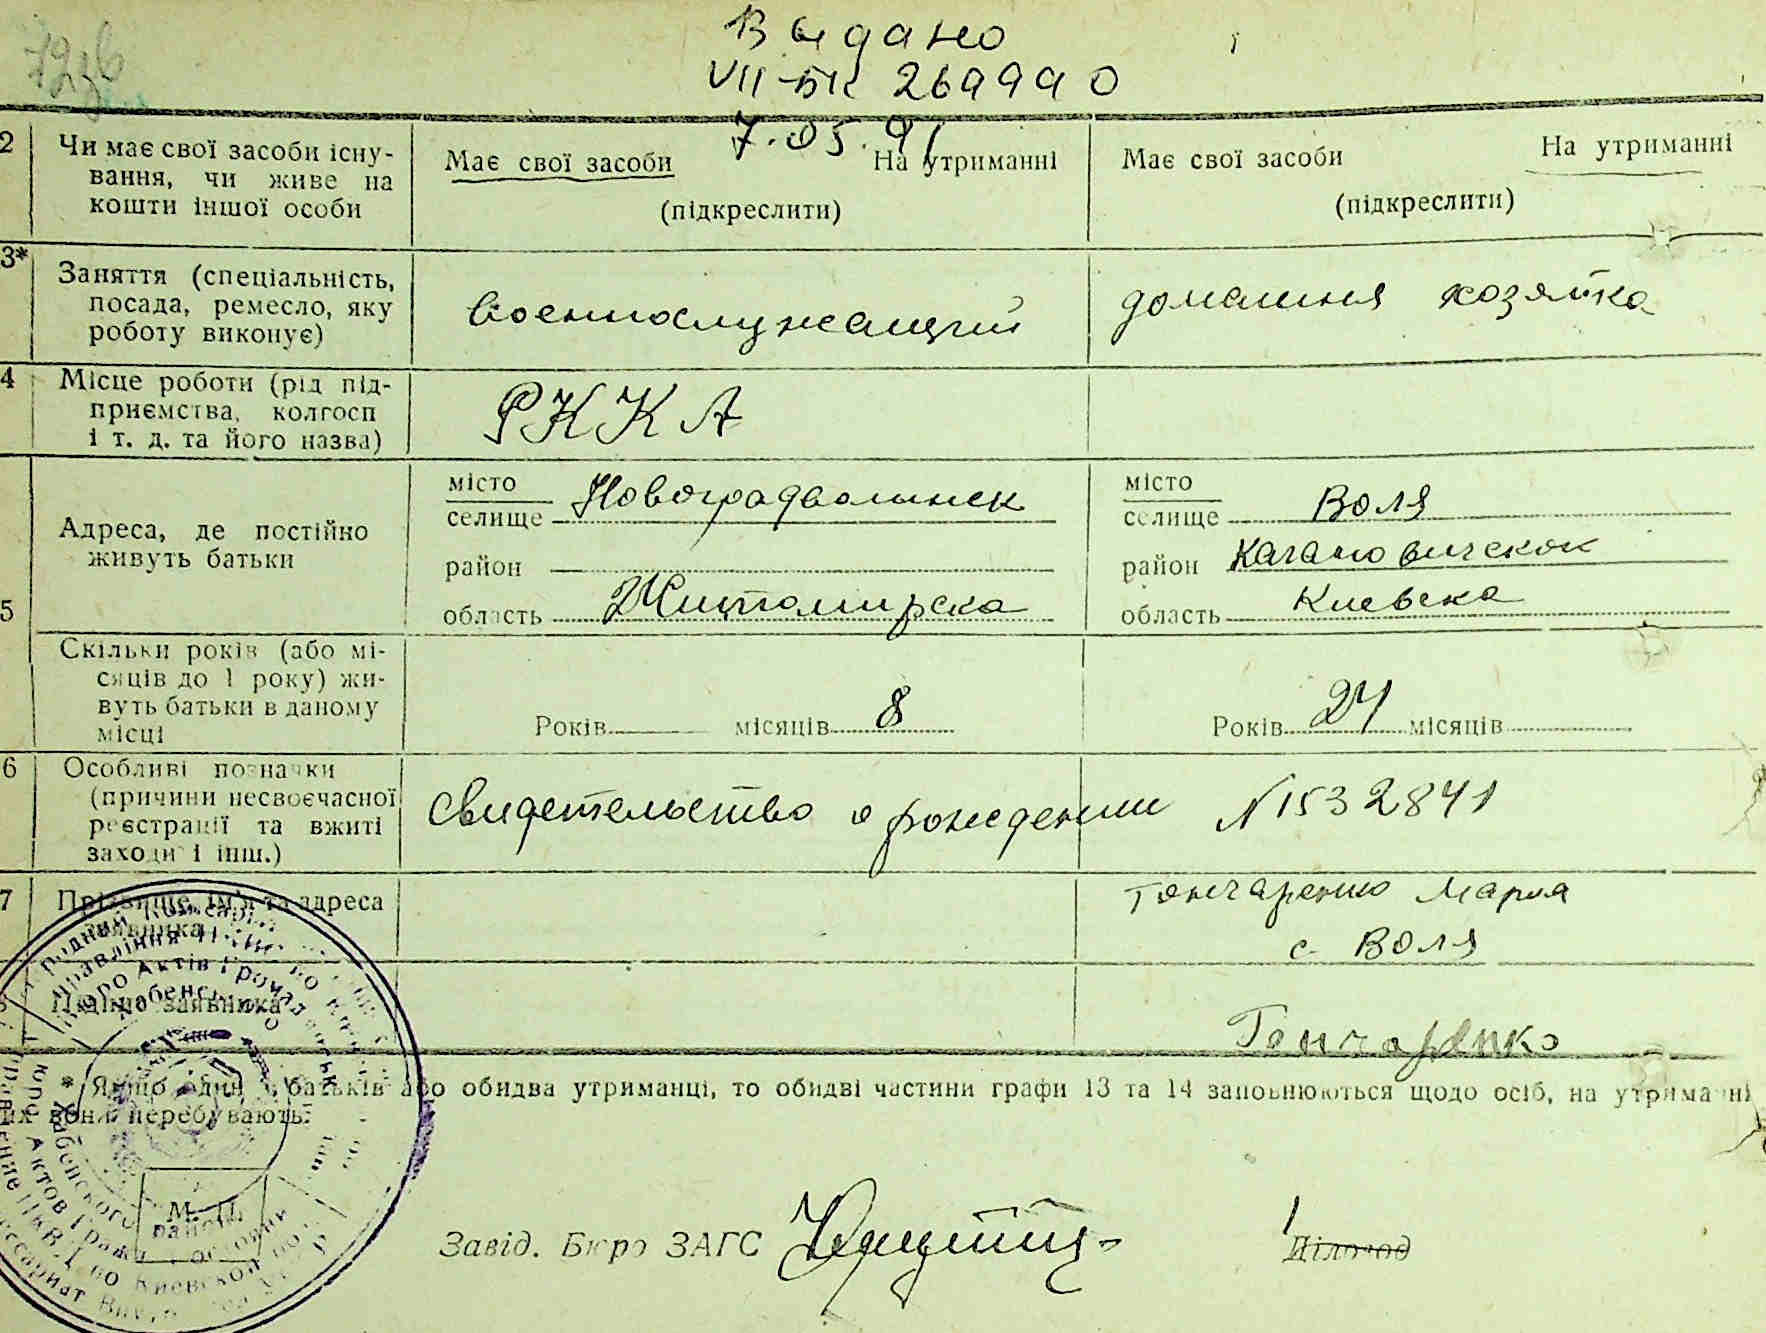 Выдано
VII-БК 269990
7.05.91
2 Чи має свої засоби існу-
вання, чи живе на
кошти іншої особи
Має свої засоби На утриманні
(підкреслити)
Має свої засоби На утриманні
(підкреслити)
3* Заняття (спеціальність,
посада, ремесло, яку
роботу виконує)
Военнослужащий
домашня хозяйка
4 Місце роботи (рід під-
приємства, колгосп
і т. д. та його назва)
РККА
5 Адреса, де постійно
живуть батьки
місто
селище Новоградволинск
район
область Житомирска
місто
селище Воля
район Кагановичском
область Киевска
Скільки років (або мі-
сяців до 1 року) жи-
вуть батьки в даному
місці
Років місяців 8
Років 24 місяців
6 Особливі позначки
(причини несвоєчасної
реєстрації та вжиті
заходи і інш.)
Свидетельство о рождении N 1532841
7 Прізвище, ім'я та адреса
заявника
Гончаренко Мария
с. Воля
Підпис заявника
Гончаренко
* Якщо один з батьків або обидва утриманці, то обидві частини графи 13 та 14 заповнюються щодо осіб, на утриманні
их вони перебувають.
М. П.
Завід. Бюро ЗАГС
Діловод